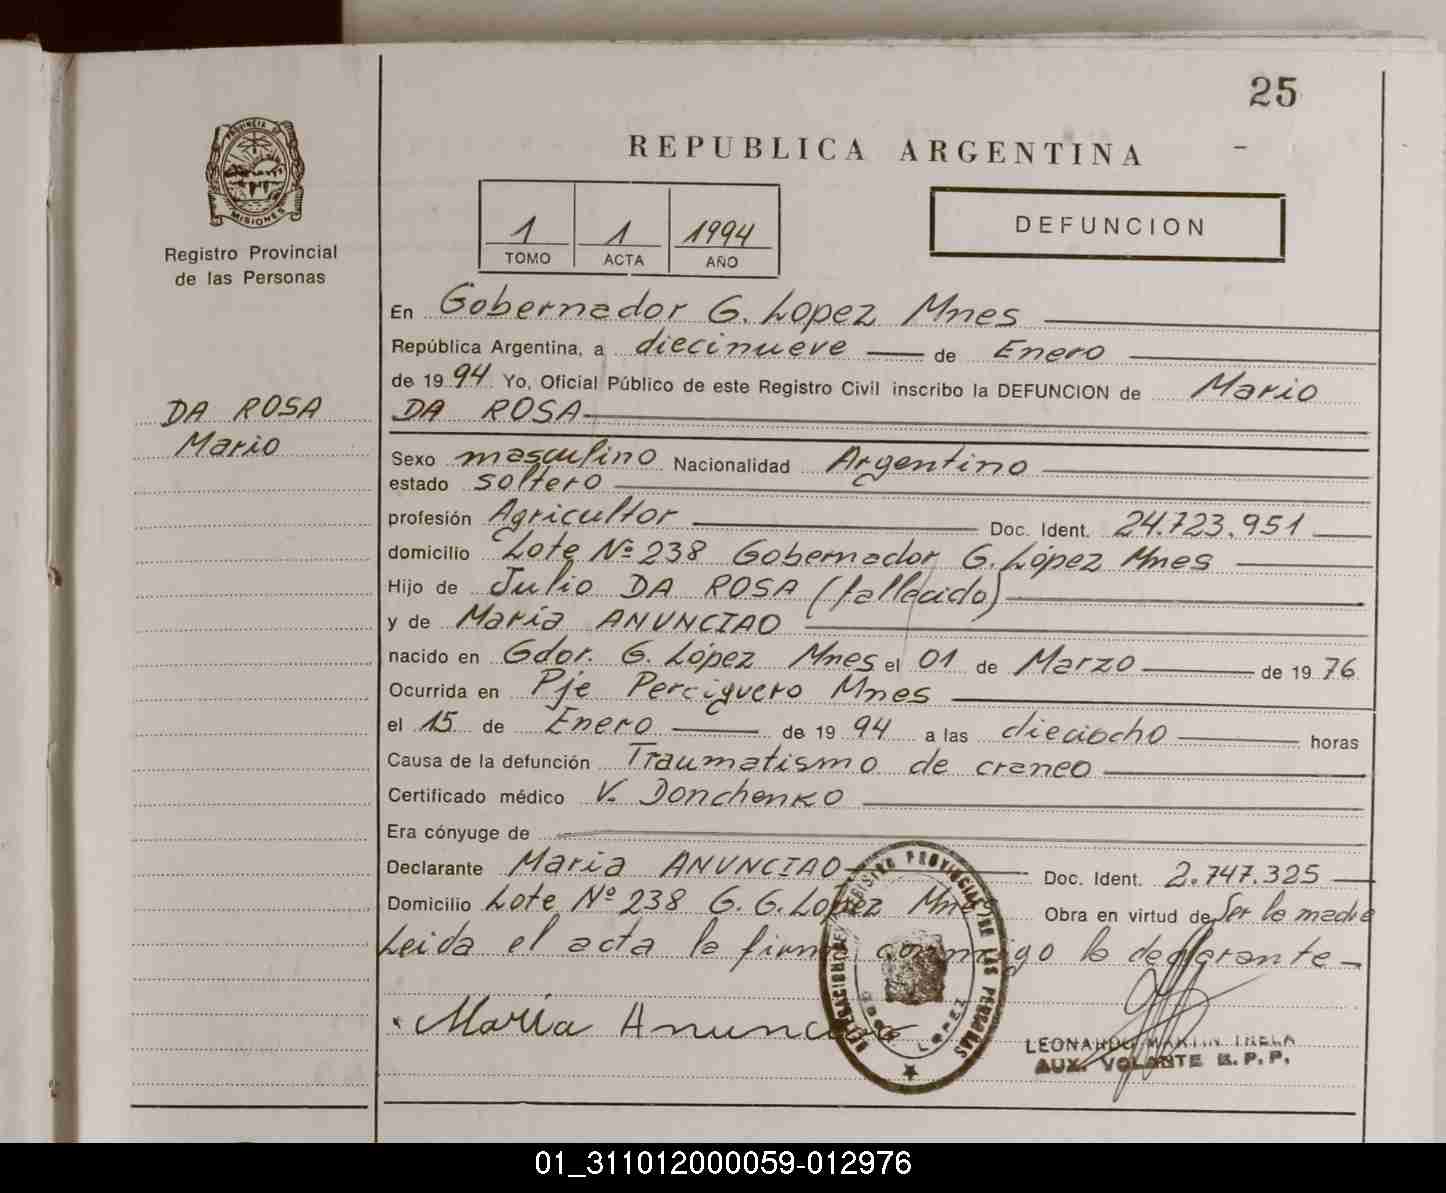 25
REPUBLICA ARGENTINA
PROVINCIA DE
MISIONES
Registro Provincial
de las Personas
1 1 1994
TOMO ACTA AÑO
DEFUNCION
En Gobernador G. Lopez Mnes
República Argentina, a diecinueve de Enero
de 1994 Yo, Oficial Público de este Registro Civil inscribo la DEFUNCION de Mario
DA ROSA
DA ROSA
Mario
Sexo masculino Nacionalidad Argentino
estado soltero
profesión Agricultor Doc. Ident. 24.723.951
domicilio Lote Nº 238 Gobernador G. López Mnes
Hijo de Julio DA ROSA (fallecido)
y de María ANUNCIAO
nacido en Gdor. G. López Mnes el 01 de Marzo de 1976
Ocurrida en Pje Perciguero Mnes
el 15 de Enero de 1994 a las dieciocho horas
Causa de la defunción Traumatismo de craneo
Certificado médico V. Donchenko
Era cónyuge de
Declarante Maria ANUNCIAO Doc. Ident. 2.747.325
Domicilio Lote Nº 238 G. G. López Mnes Obra en virtud de Ser la madre
Leida el acta la firma conmigo la declarante
María Anunciao
REGISTRO PROVINCIAL DE LAS PERSONAS
LOPEZ
LEONARDO MARTIN
AUX. VOLANTE R.P.P.
01_311012000059-012976